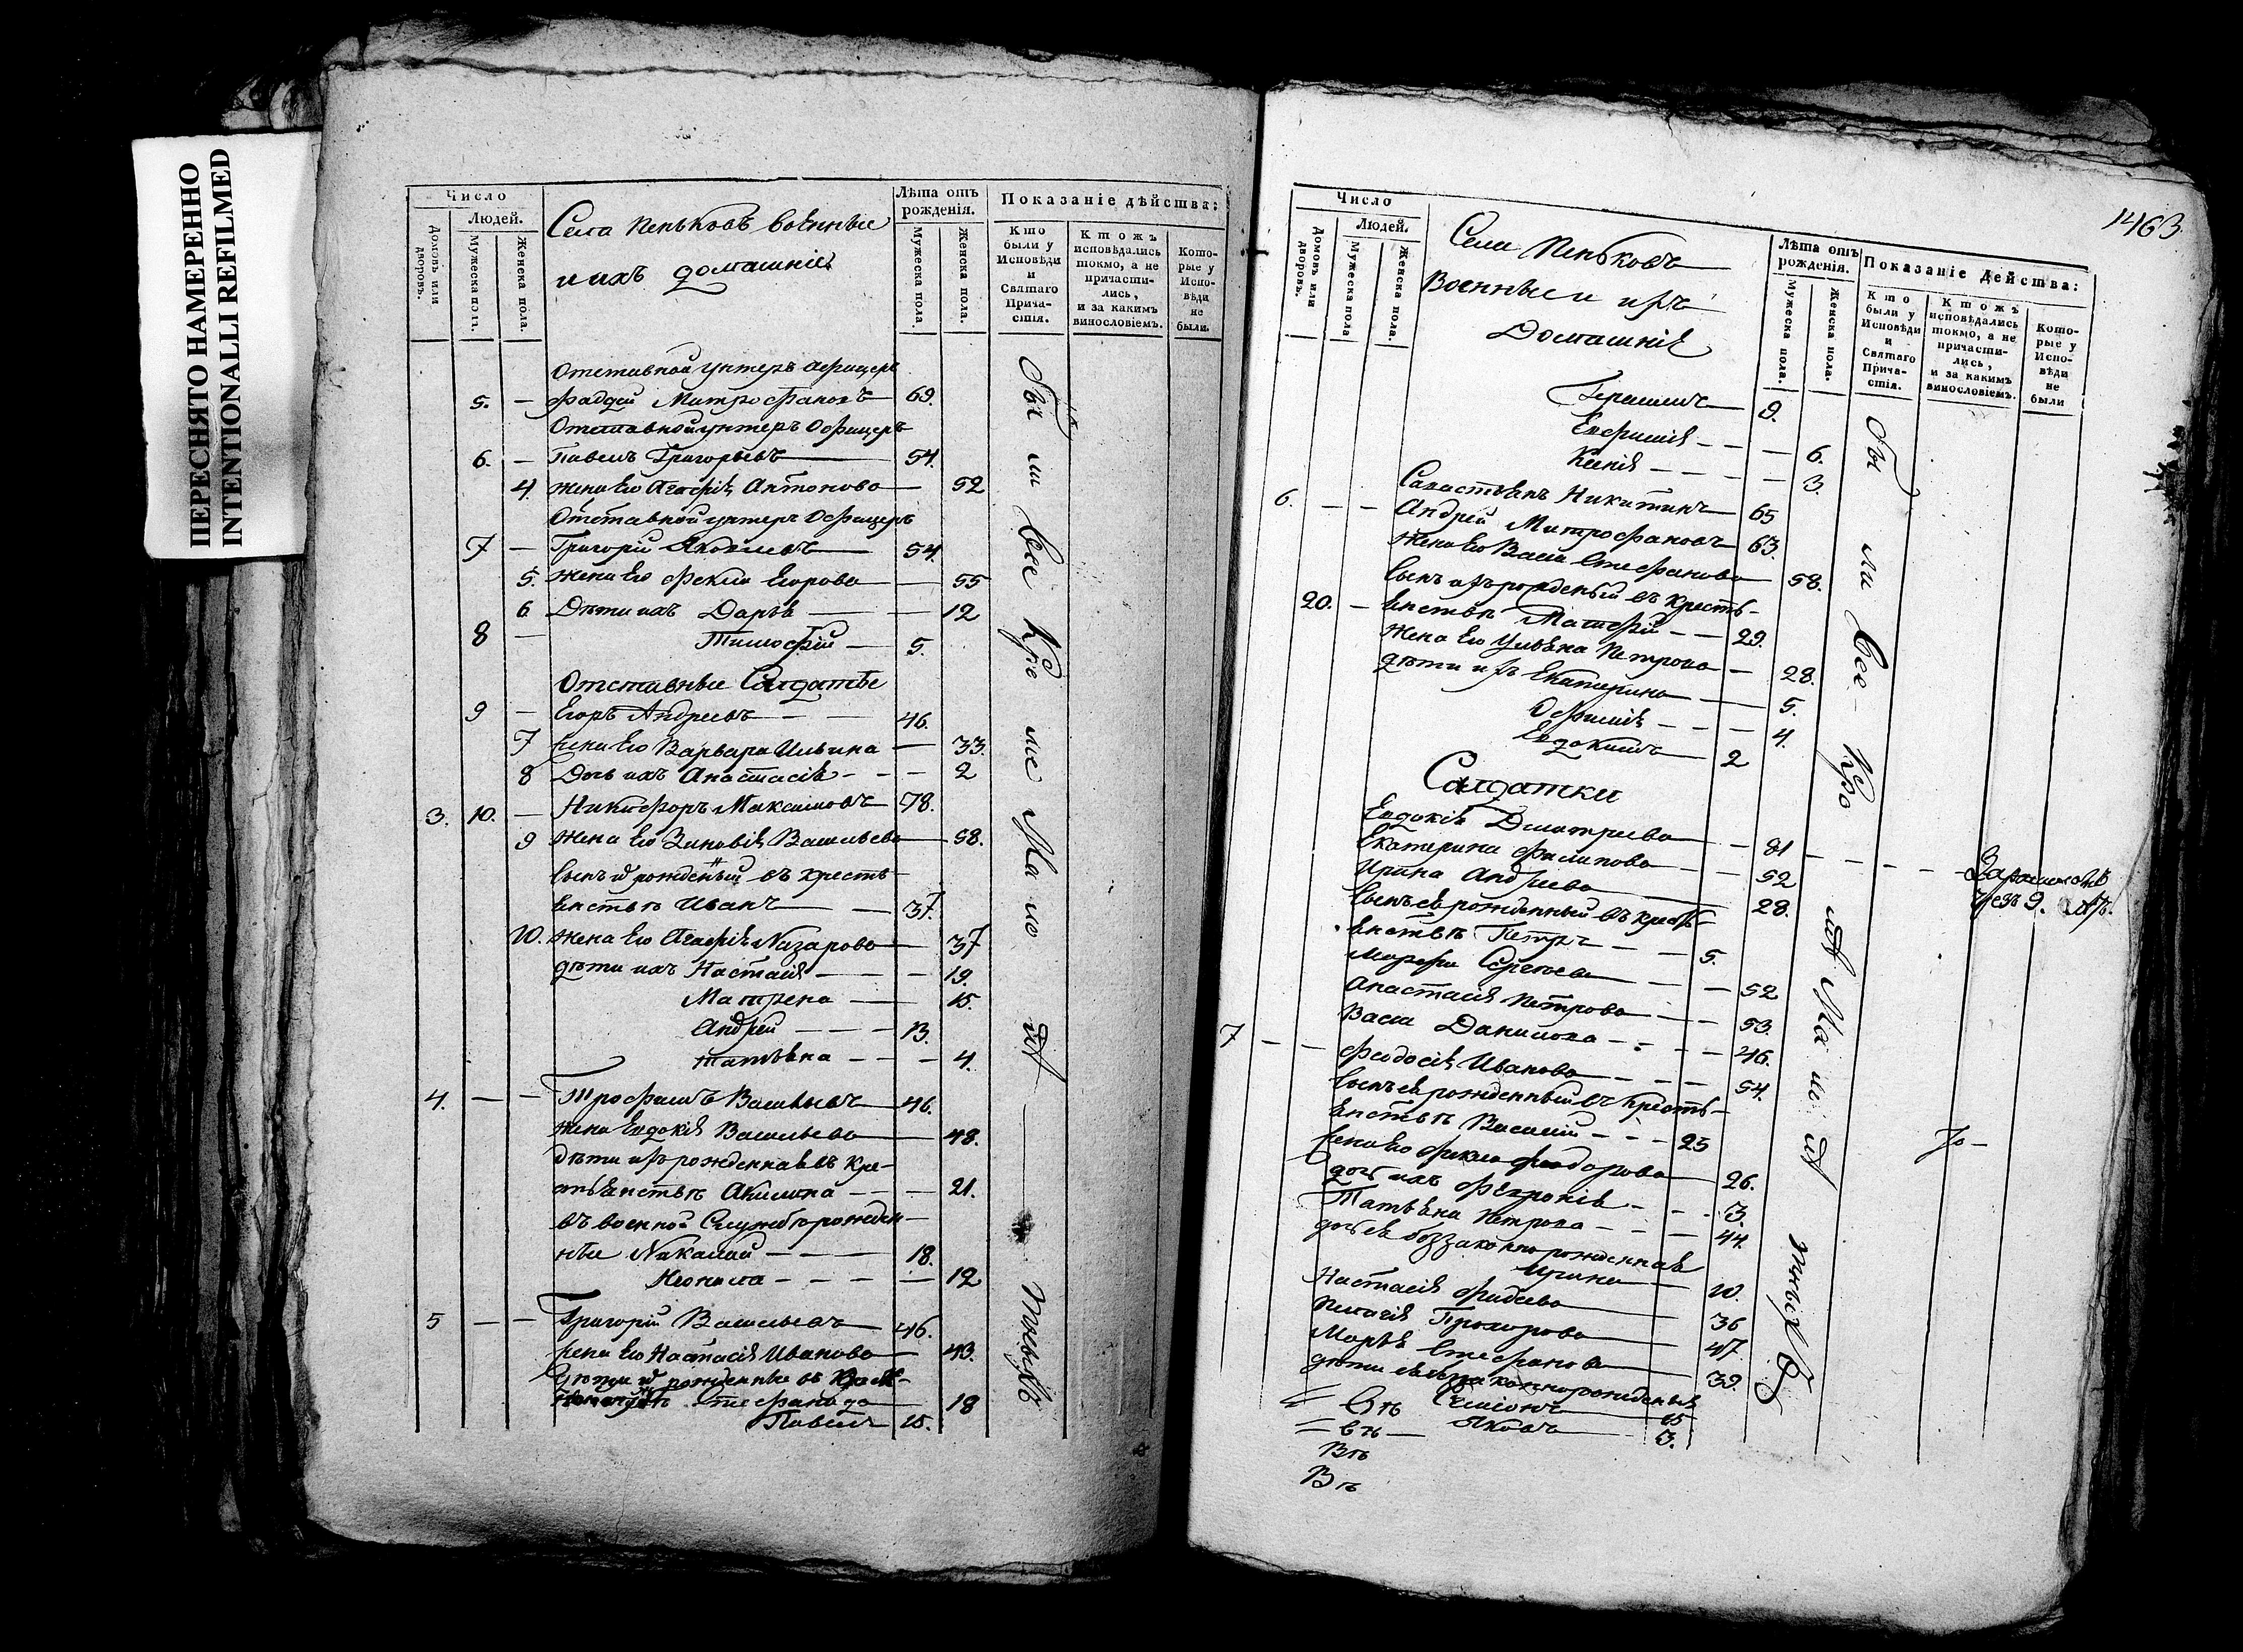 ПЕРЕСНЯТО НАМЕРЕННО
INTENTIONALLI REFILMED
Число
Людей.
Домовъ или дворовъ.
Мужеска полъ.
Женска пола.
Села Пеньковъ военные
и ихъ домашніе
Лѣта отъ рожденія.
Мужеска пола.
Женска пола.
Показаніе дѣйства:
Кто были у Исповѣди и Святаго Причастія.
Ктожъ исповѣдались токмо, а не причастились, и за какимъ винословіемъ.
Которые у Исповѣди не были.
Отставной унтеръ офицеръ
5. — Фадѣй Митрофановъ 69.
Отставной унтеръ Офицеръ
6. — Павелъ Григорьевъ 54.
4. жена Его Агафія Антонова — 52
Отставной унтеръ Офицеръ
7 — Григорій Яковлевъ 54.
5. жена Его Фекла Егорова — 55
6 Дѣти ихъ Дарья — — 12
8 — Тимофѣй — 5.
Отставные Салдаты
9 — Егоръ Андреевъ — — 46.
7 жена Его Варвара Ильина — 33.
8 Дочь ихъ Анастасія - - - 2
3. 10. — Никифоръ Максимовъ 78.
9 жена Его Зиновія Васильева — 58.
сынъ рожденный въ кресть-
янствѣ Иванъ — — 37.
10. жена Его Агафія Назарова — 37
дѣти ихъ Настасія - - - 19.
Матрена — — 15.
Андрей - - - 13.
татьяна - - - 4.
4. — — Трофимъ Васильевъ 46.
жена Евдокія Васильева — 48.
дѣти ихъ рожденная въ кре-
стьянствѣ Акилина - - - 21.
въ военной Службѣ рожден-
ные Николай - - - 18.
Неонила - - - — 12
5 — — Григорій Васильевъ 46.
жена Его Настасія Иванова — 43.
рожденные въ
Стефанида 18
Павелъ 15.
Бы ли Все Кро ме Ма ло лѣт
1463
Число
Людей.
Домовъ или дворовъ.
Мужеска пола
Женска пола.
Села Пеньковъ
Военные и ихъ
Домашніе
Лѣта отъ рожденія.
Мужеска пола.
Женска пола.
Показаніе Действа:
Кто были у Исповѣди и Святаго Причастія.
Ктожъ исповѣдались токмо, а не причастились, и за какимъ винословіемъ.
Которые у Исповѣди не были
Герасимъ — 9.
Ефимія - - — 6.
Ксенія - - - — 3.
Савастьянъ Никитинъ — 65
6. — — Андрей Митрофановъ 63.
жена Его Васса Стефанова 58.
сынъ ихъ рожденый въ кресть-
20. — янствѣ Матфѣй - - 29.
жена Его Ульяна Петрова — 28.
дѣти ихъ Екатерина — 5.
Офимія - - - 4.
Евдокимъ 2
Салдатки
Евдокія Дмитриева — - 81
Екатерина Филипова — - 52
Ирина Андреева 28.
сынъ ея рожденный въ кресть-
янствѣ Петръ — — 5.
Марфа Сергеева — 52
Анастасія Петрова — 53.
Васса Данилова - - - 46.
7 — — Феодосія Иванова - - - 54.
сынъ ея рожденный въ кресть-
янствѣ Василій - - - 25
жена Его Фекла Феодорова 26.
дочь ихъ Феврония - - - 3.
Татьяна Петрова - - - 44.
дочь ея беззаконно рожденная
Ирина 10.
Настасія Фадеева 36
Пелагія Прохорова 47.
Марья Стефанова 39.
дѣти ея беззаконнорожденыя
Симіонъ 15
Яковъ 3.
Вѣ
Вѣ
Бы ли Все Кро